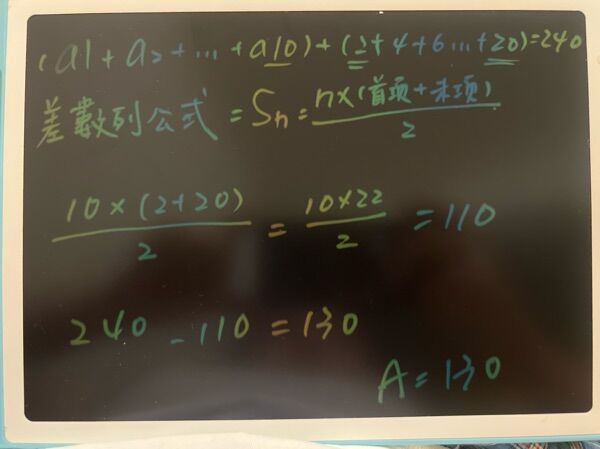 (a1 + a2 + ... + a10) + (2+4+6...+20)=240
差數列公式 = Sn = n×(首項+末項)/2
10×(2+20)/2 = 10×22/2 = 110
240 - 110 = 130
A = 130